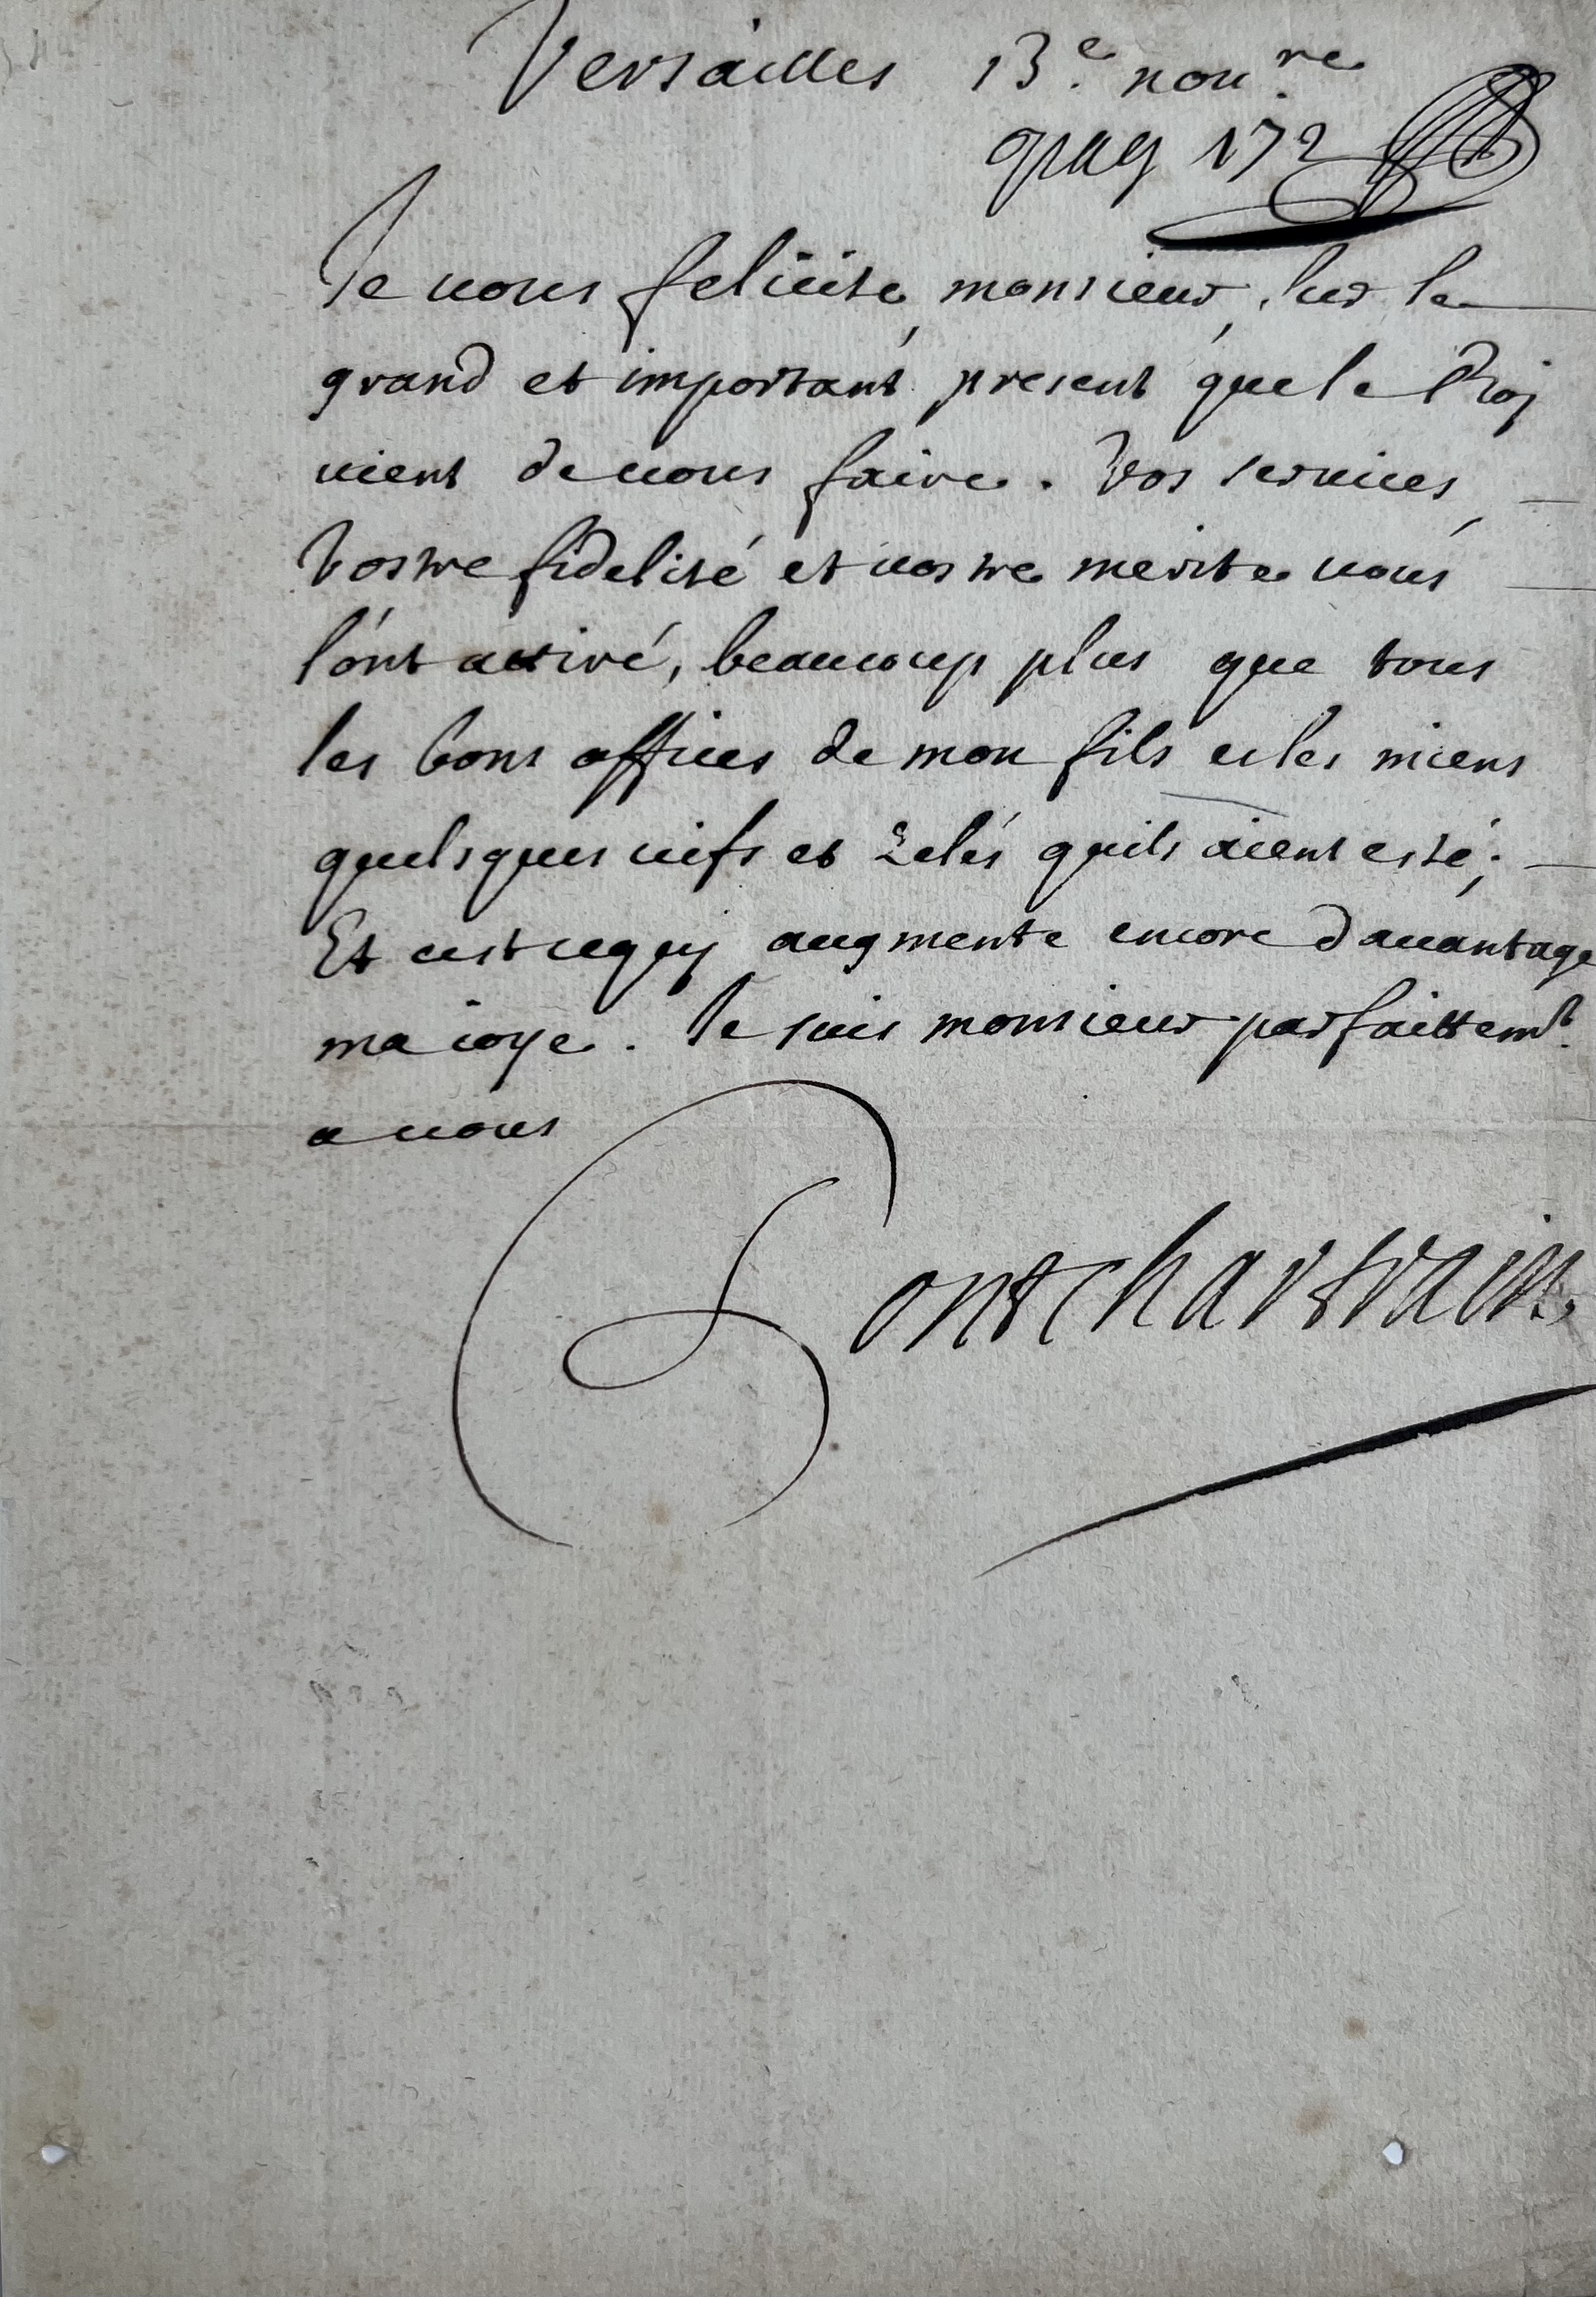 Versailles 13.e nou.re
172
Je uous felicite, monsieur, sur le
grand et important present que le Roj
uient de uous faire. Vos seruices,
Vostre fidelité et uostre merite uous
l'ont attiré, beaucoup plus que tous
les bons offices de mon fils et les miens
quelsques uifs et zelés quils aient esté;
Et cest ce quj augmente encore dauantage
ma ioye. Je suis monsieur parfaittemt.
a uous
Pontchartrain.